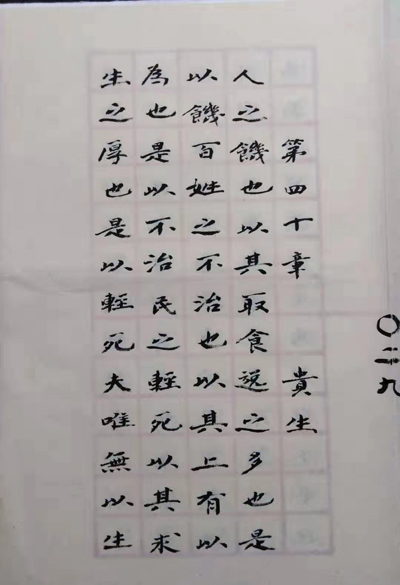 〇二九
第四十章 貴生
人之饑也以其取食之多也是
以饑百姓之不治也以其上有以
為也是以不治民之輕死以其求
生之厚也是以輕死夫唯無以生